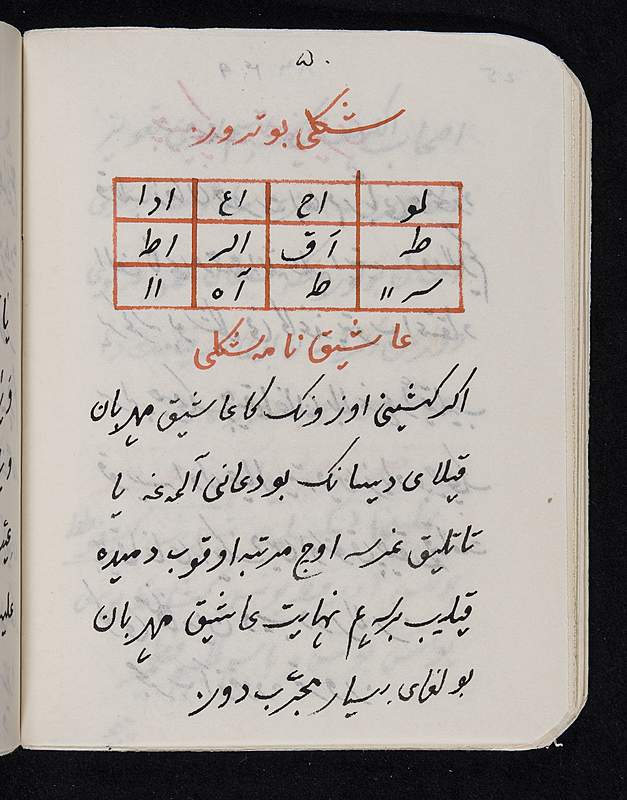 شکلی بو ترور.
لو اح اع ادا
ط آق الر اط
سر ۱۱ ط آه ۱۱
عاشیق نامه شکلی
اکر کشینی اوزونک کا عاشیق مهربان
قیلای دیسانک بو دعانی آلمه‌غه یا
تاتلیق نمرسه اوچ مرتبه اوقوب دمیده
قیلیب برسه نهایت عاشیق مهربان
بولغای بسیار مجرّب دور.